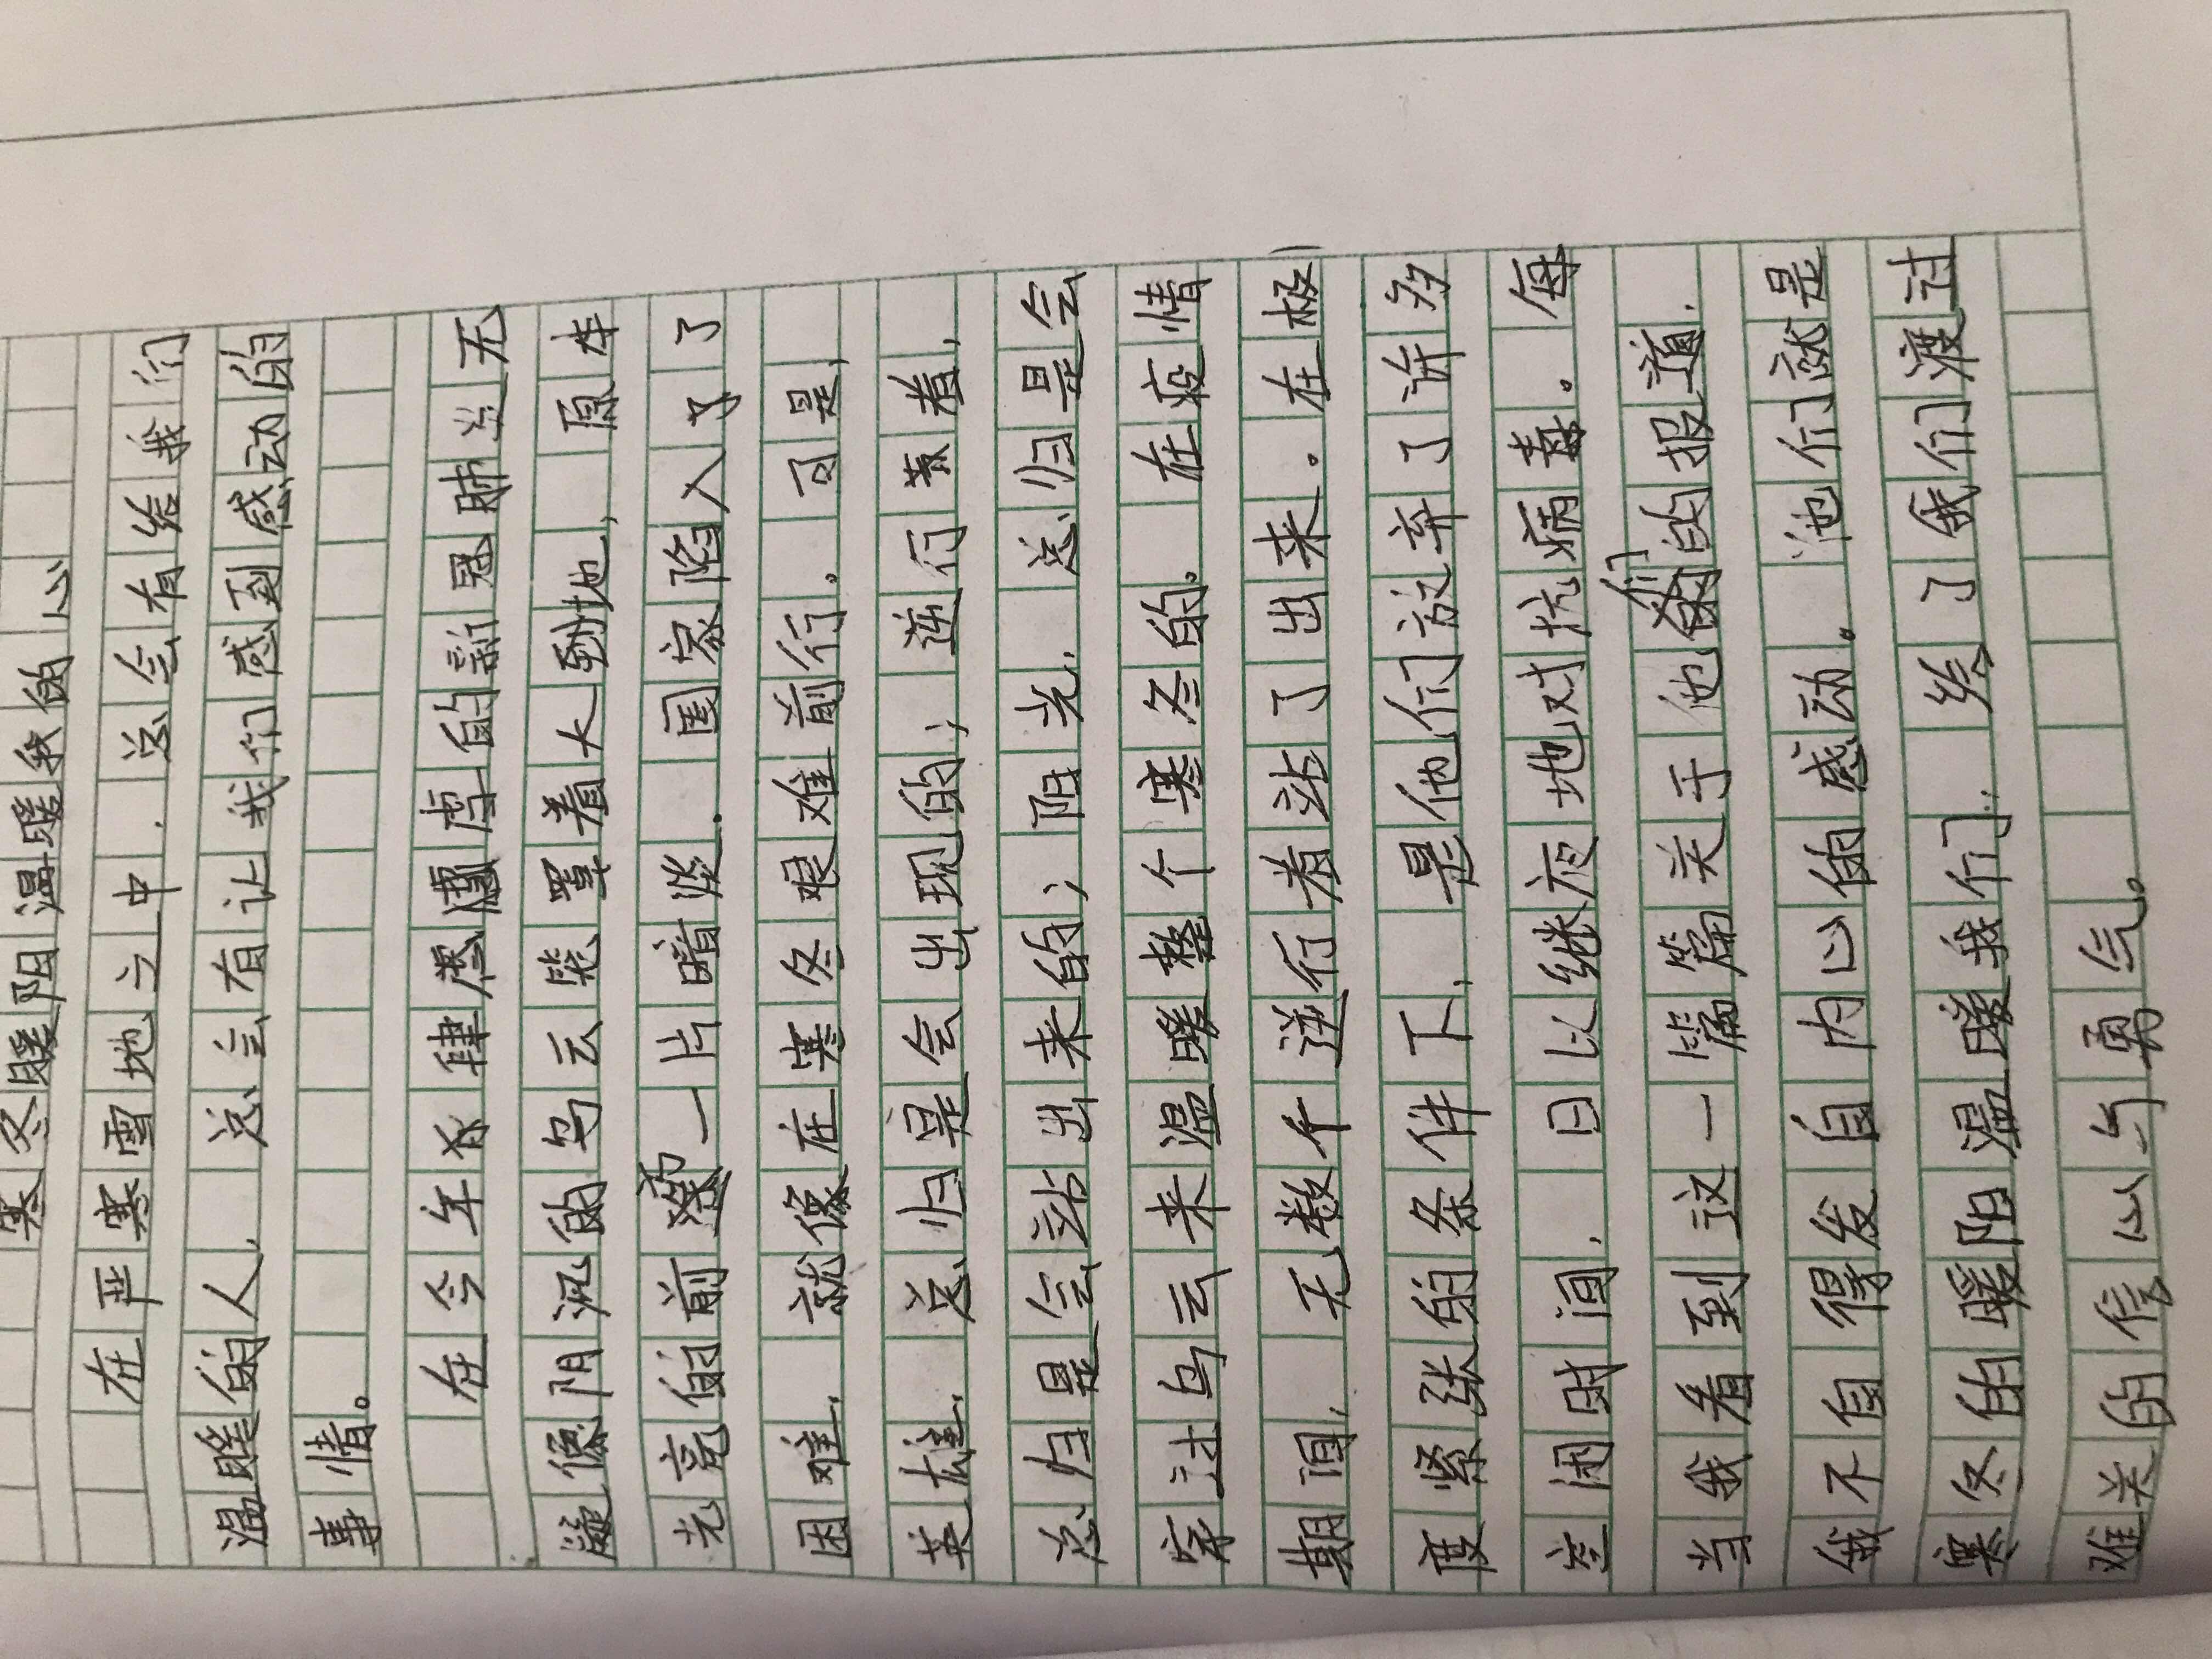 寒冬暖阳温暖我的心
在严寒雪地之中，总会有给我们
温暖的人，总会有让我们感到感动的
事情。
在今年春肆虐的新冠肺炎无
疑像阴沉的乌云笼罩着大地，原本
光亮的前一片暗淡，国家陷入了
困难，就像在寒冬艰难前行。可是，
英雄，总归是会出现的；逆行着，
总归是会站出来的；阳光，总归是会
穿过乌云来温暖整个寒冬的。在疫情
期间，无数个逆行者站了出来。在极
度紧张的条件下，是他们放弃了许多
空闲时间，日以继夜地对抗病毒。每
当我看到这一篇篇关于他们的报道，
我不自得发自内心的感动。他们就是
寒冬的暖阳温暖我们，给了我们渡过
难关的信心与勇气。